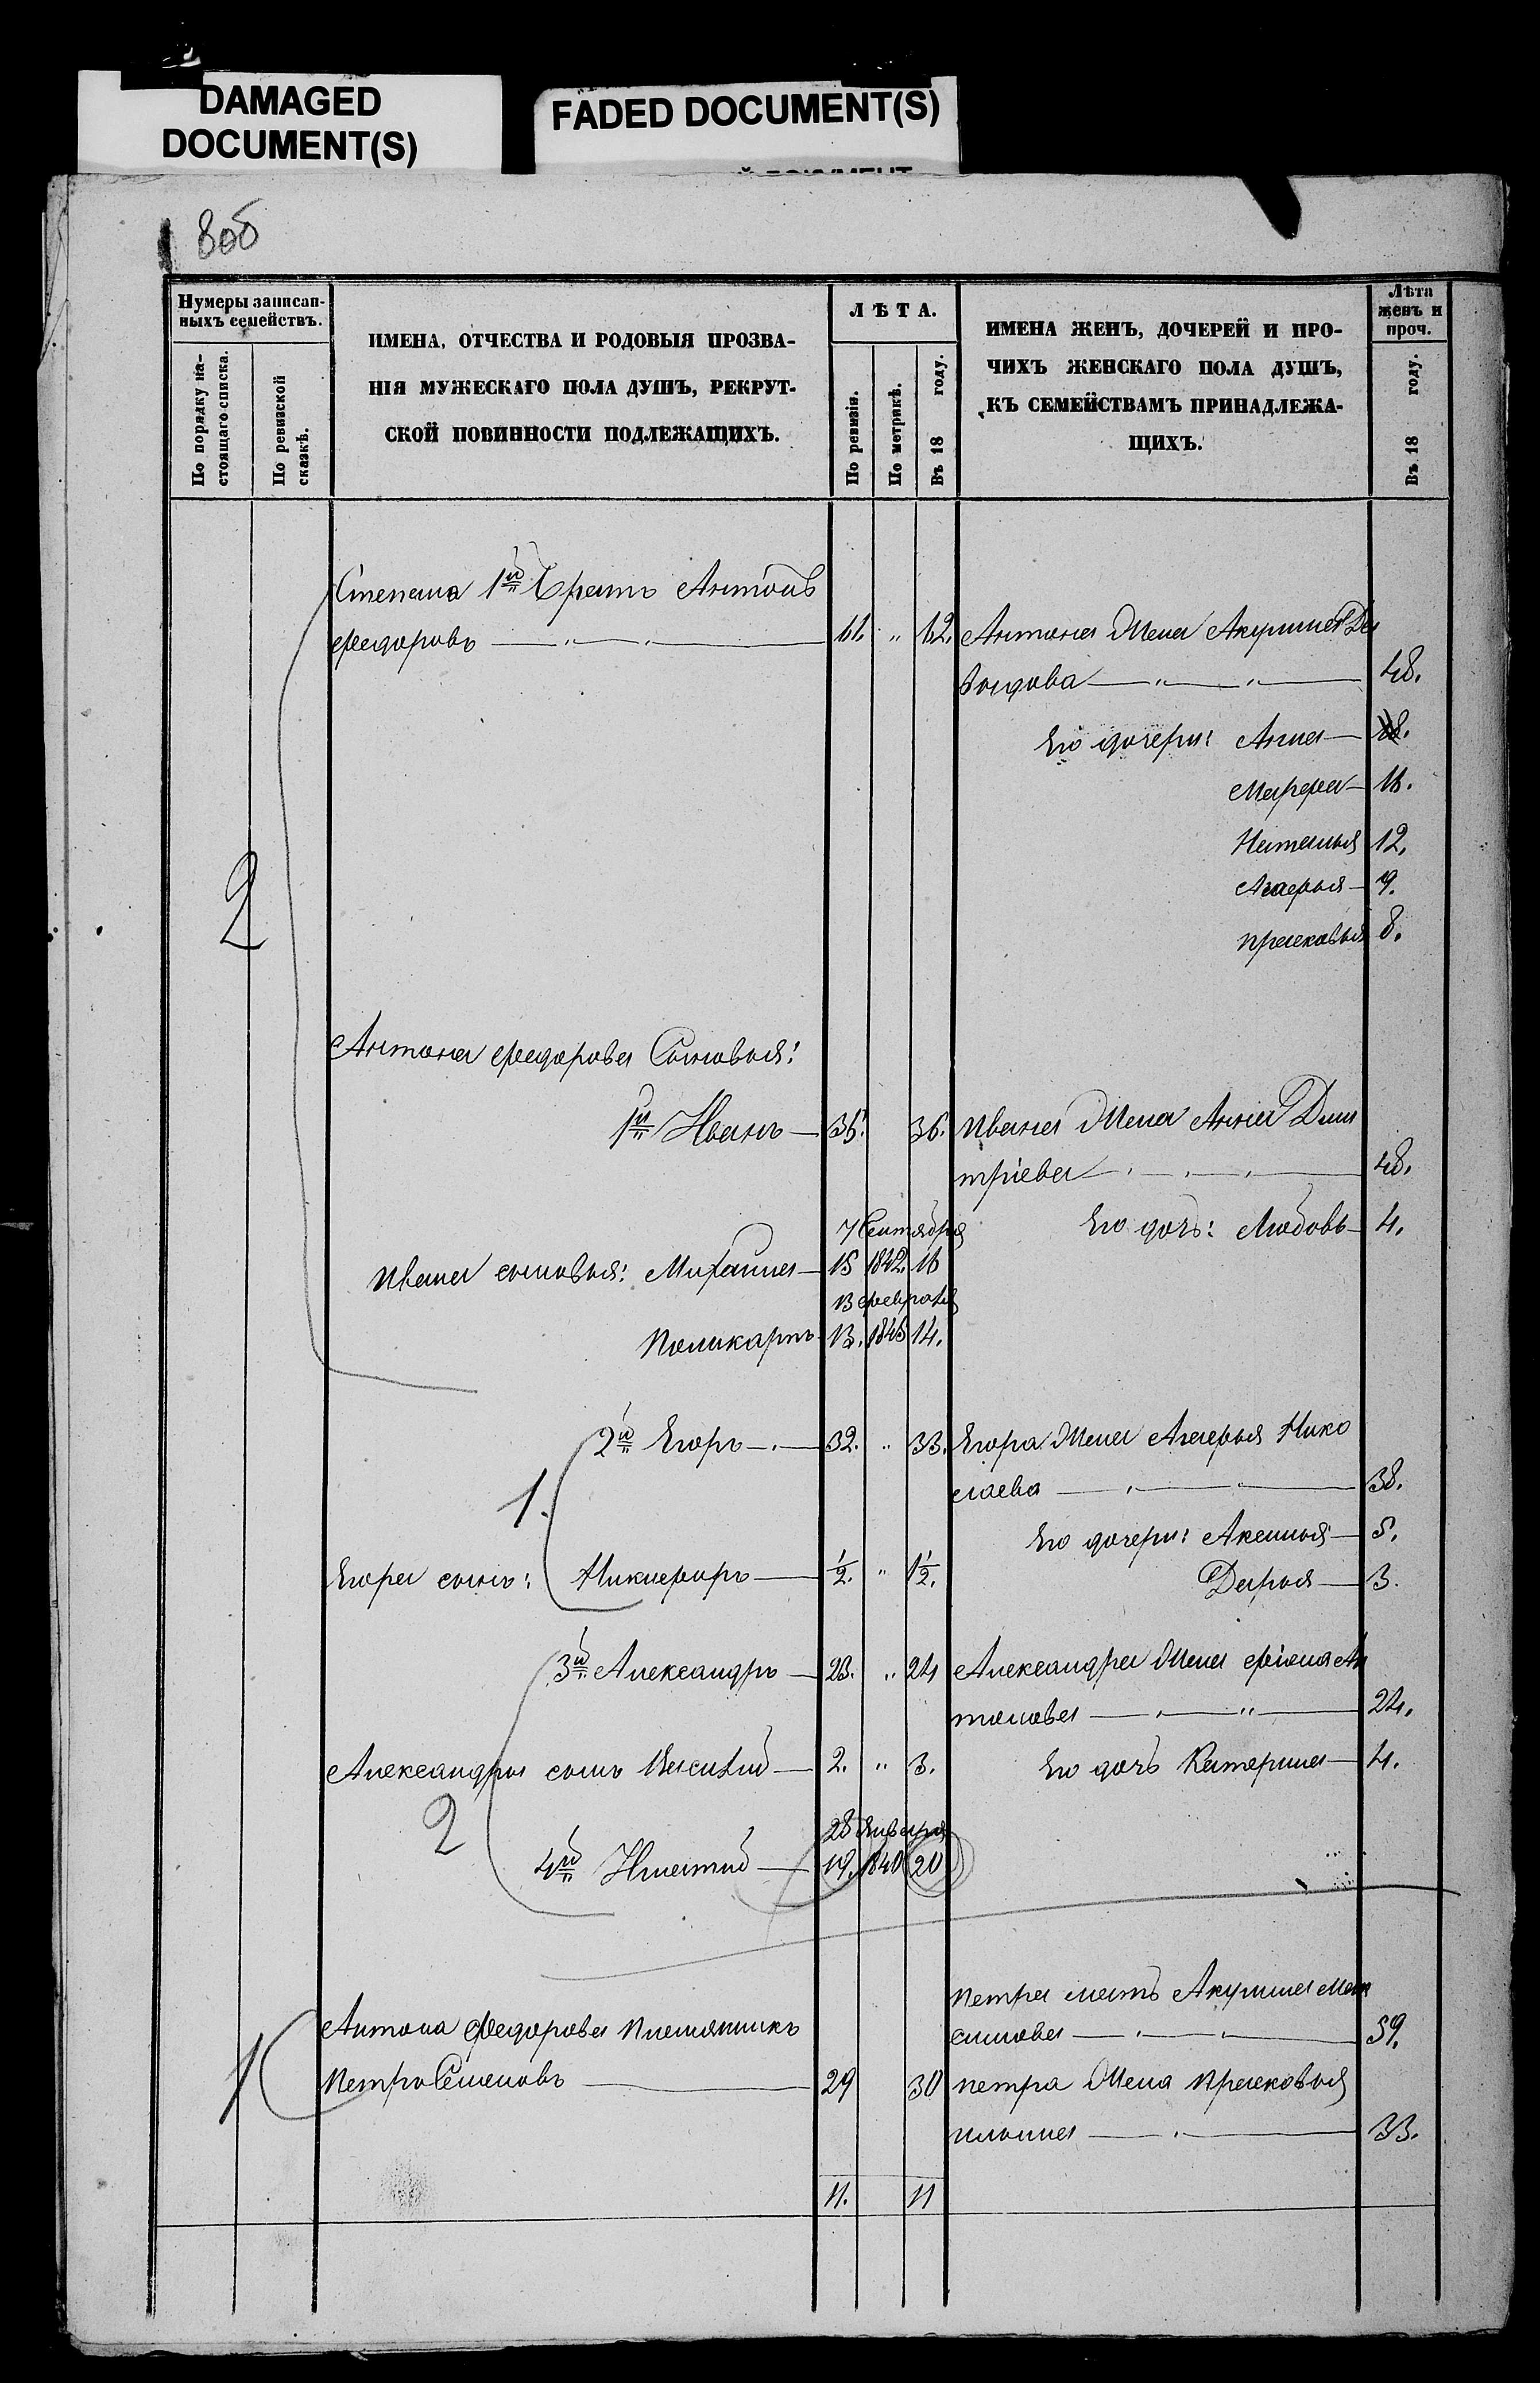 DAMAGED
DOCUMENT(S)
FADED DOCUMENT(S)
80б
Нумеры записан-
ныхъ семействъ.
По порядку на-
стоящаго списка.
По ревизской
сказкѣ.
ИМЕНА, ОТЧЕСТВА И РОДОВЫЯ ПРОЗВА-
НІЯ МУЖЕСКАГО ПОЛА ДУШЪ, РЕКРУТ-
СКОЙ ПОВИННОСТИ ПОДЛЕЖАЩИХЪ.
ЛѢТА.
По ревизіи.
По метрикѣ.
Въ 18 году.
ИМЕНА ЖЕНЪ, ДОЧЕРЕЙ И ПРО-
ЧИХЪ ЖЕНСКАГО ПОЛА ДУШЪ,
КЪ СЕМЕЙСТВАМЪ ПРИНАДЛЕЖА-
ЩИХЪ.
Лѣта
женъ и
проч.
Въ 18 году.
Степана 1й братъ Антонъ
федоровъ — 61. " 62. Антона жена Акулина
48.
Его дочери: Анна
Марфа — 16.
Наталья 12.
9.
прасковья 8.
2
Антона федорова Сыновья:
1й Иванъ — 35. 36. Ивана жена Анна Дми
тріева — 48.
7 Сентября Его дочь: Любовь — 4.
Ивана сыновья: Михаила — 15 1842. 16
13 февраля
Поликарпъ 13. 1845 14.
2й Егоръ — 32. " 33. Егора жена Нико
лаева — 38.
1.
Его дочери: Аксинья — 5.
Егора сынъ: Никифоръ — ½. " 1½. Дарья — 3.
3й Александръ — 23. " 24 Александра жена Ан
тонова — 24.
Александра сынъ Василій — 2. " 3. Его дочь Катерина — 4.
2
28 Января
4й Игнатій — 19. 1840 20
Петра мать Акулина Мак
Антона федорова племянникъ симова — 59.
1 Петръ Семеновъ — 29 30 петра жена прасковья
ильина — 33.
11. 11